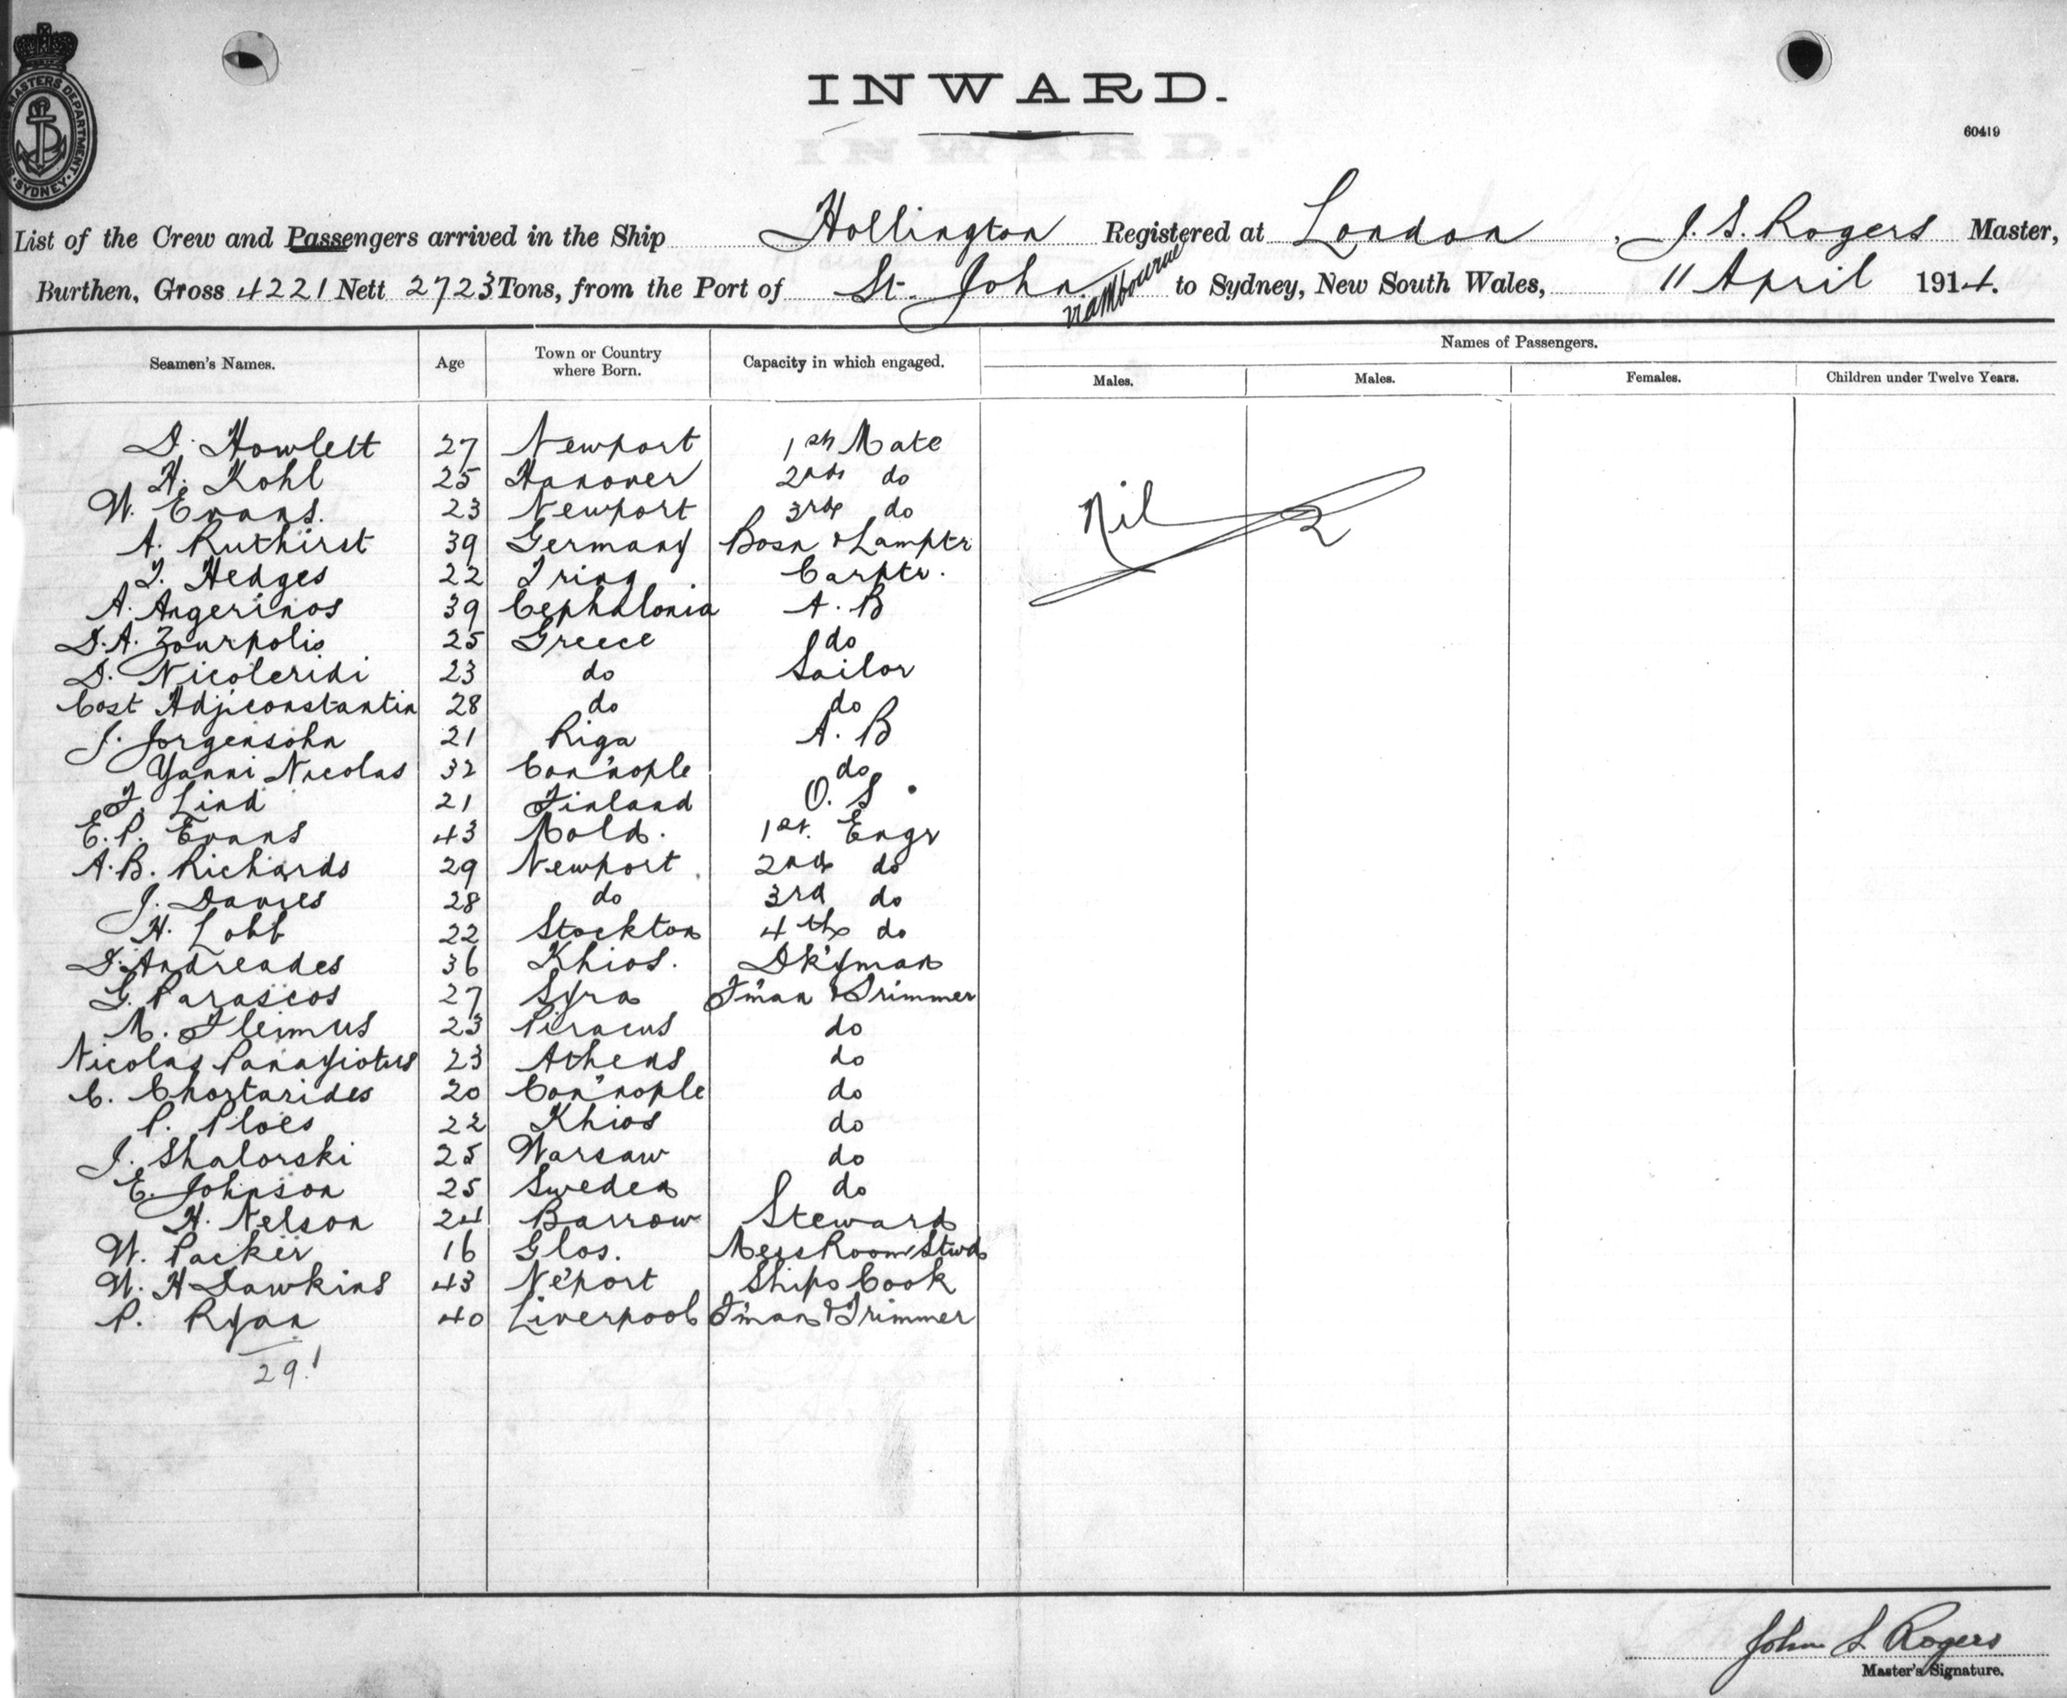 SHIPPING MASTERS DEPARTMENT SYDNEY
INWARD.
60419
List of the Crew and Passengers arrived in the Ship Hollington Registered at London, J. S. Rogers Master,
Burthen, Gross 4221 Nett 2723 Tons, from the Port of St. John via Mbourne to Sydney, New South Wales, 11 April 1914.
Seamen's Names. Age Town or Country where Born. Capacity in which engaged. Names of Passengers.
Males. Males. Females. Children under Twelve Years.
D. Howlett 27 Newport 1st Mate
H. Kohl 25 Hanover 2nd do
W. Evans. 23 Newport 3rd do
Nil
A. Ruthirst 39 Germany Bosn & Lamptr
T. Hedges 22 Tring Carptr.
A. Angerinos 39 Cephalonia A. B
D. A. Zourpolis 25 Greece do
D. Nicoleridi 23 do Sailor
Cost Adjiconstantin 28 do do
J. Jorgensohn 21 Riga A. B
Yanni Nicolas 32 Con'nople do
F. Lind 21 Finland O. S
E. P. Evans 43 Mold. 1st. Engr
A. B. Richards 29 Newport 2nd do
J. Davies 28 do 3rd do
H. Lobb 22 Stockton 4th do
D. Andreades 36 Khios. Dk'yman
G. Parascos 27 Syra F'man & Trimmer
M. Fleimus 23 Piraeus do
Nicolas Panayiotus 23 Athens do
C. Chortarides 20 Con'nople do
P. Ploes 22 Khios do
J. Shalorski 25 Warsaw do
E. Johnson 25 Sweden do
H. Nelson 24 Barrow Steward
W. Packer 16 Glos. Mess Room Stwd
W. H Dawkins 43 Ne'port Ships Cook
P. Ryan 40 Liverpool F'man & Trimmer
29
John S Rogers
Master's Signature.